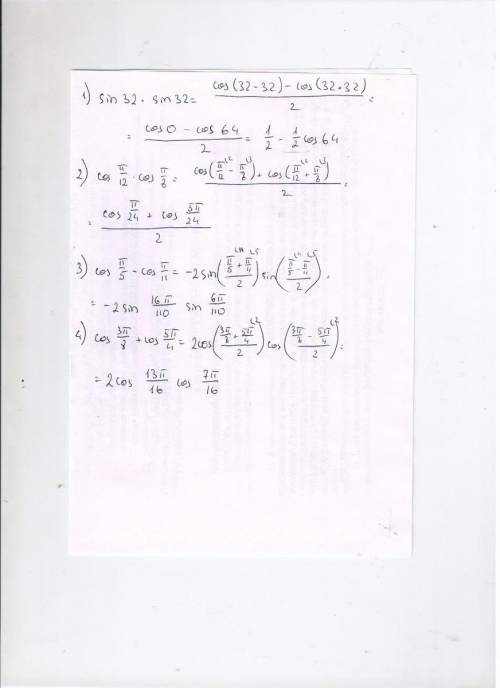 1) sin 32 · sin 32 = (cos(32-32) - cos(32+32))/2 =
= (cos 0 - cos 64)/2 = 1/2 - 1/2 cos 64
2) cos π/12 · cos π/8 = (cos(π/12 - π/8) + cos(π/12 + π/8))/2 =
= (cos π/24 + cos 5π/24)/2
3) cos π/5 - cos π/11 = -2 sin((π/5 + π/11)/2) sin((π/5 - π/11)/2) =
= -2 sin 16π/110 sin 6π/110
4) cos 3π/8 + cos 5π/4 = 2cos((3π/8 + 5π/4)/2) cos((3π/8 - 5π/4)/2) =
= 2cos 13π/16 cos 7π/16